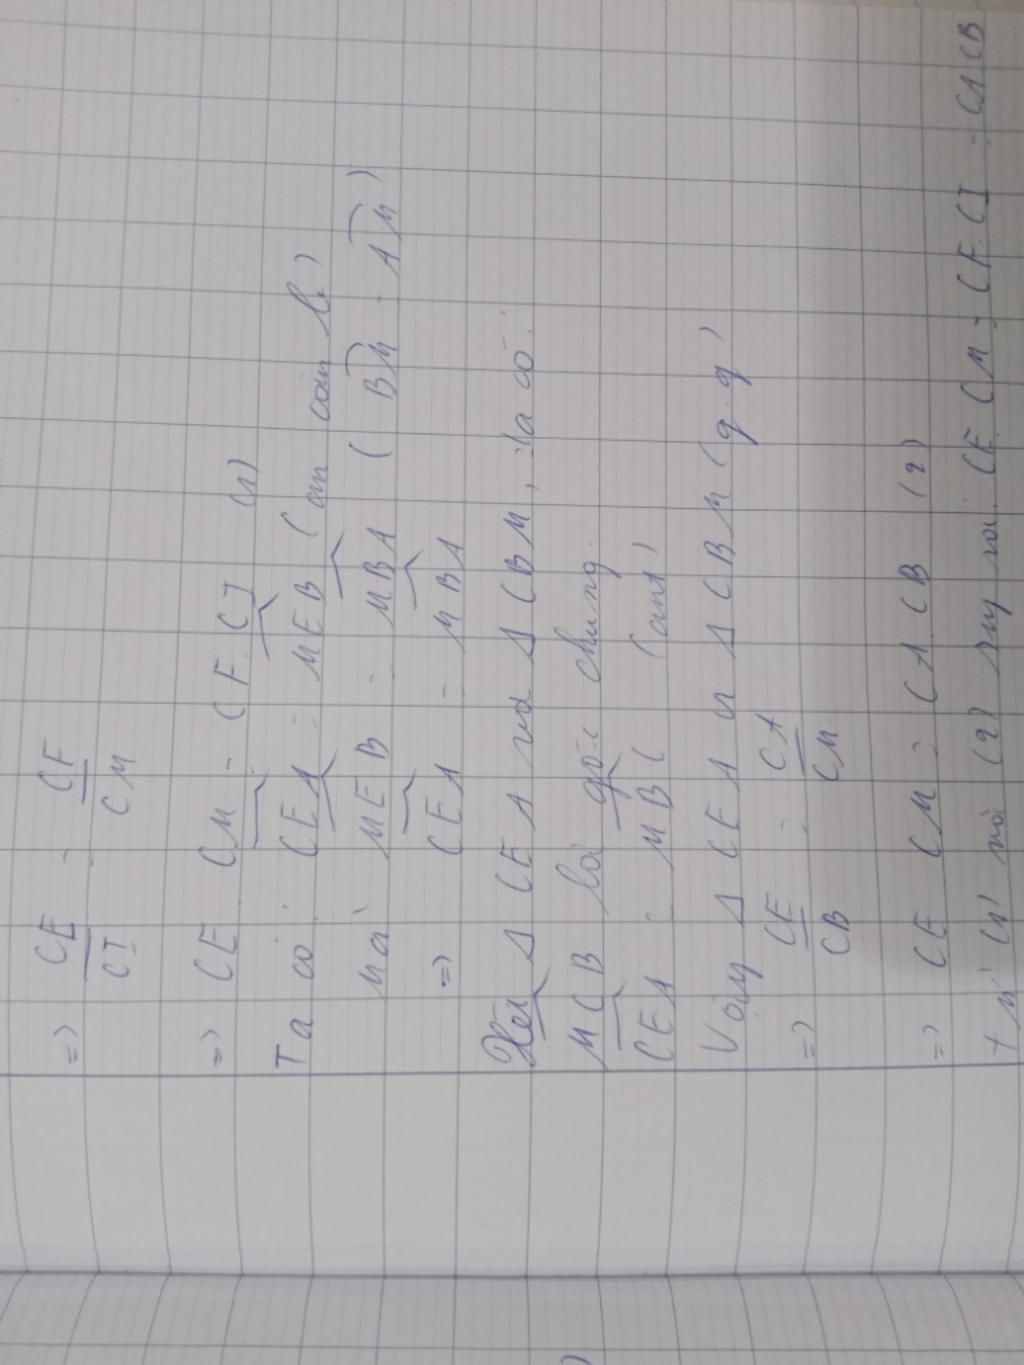 => CE/CI = CF/CM
=> CE . CM = CF . CI (1)
Ta có : CEA = MEB (cm còn lì)
Mà MEB = MBA ( BM = AM )
=> CEA = MBA
Xét Δ CEA và Δ CBM, ta có :
MCB là góc chung.
CEA = MBC (cmt)
Vậy Δ CEA ∽ Δ CBM (g.g)
=> CE/CB = CA/CM
=> CE . CM = CA . CB (2)
+ Từ (1) mà (2) suy ra: CE . CM = CF . CI = CA . CB